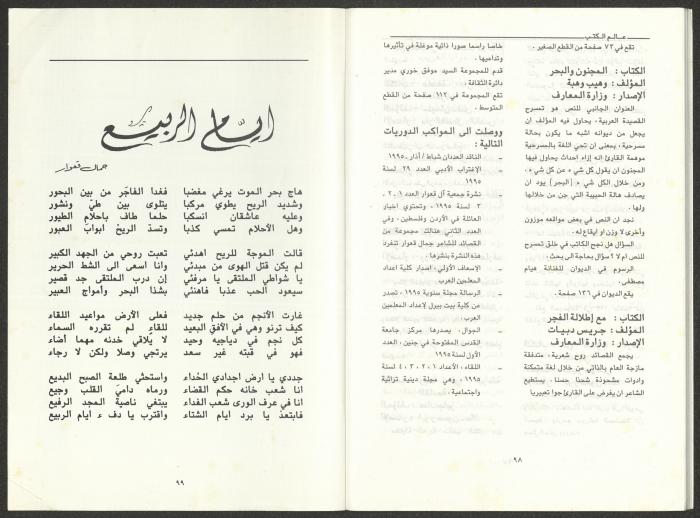 عـالـم الـكتـب
تقع في ٧٣ صفحة من القطع الصغير .
الكتاب : المجنون والبحر
المؤلف : وهيب وهبة
الإصدار : وزارة المعارف
العنوان الجانبي للنص هو تسبرح
القصيدة العربية، يحاول فيه المؤلف ان
يجعل من ديوانه اشبه ما يكون بحالة
مسرحية، بمعنى ان تجي اللغة بالمسرحية
موهمة القارئ انه إزاء إحداث يحاول فيها
المجنون ان يقول كل شيء عن كل شيء .
ومن خلال الكل شيء [البحر] يود ان
يصادف هالة الحبيبة التي جن من خلالها
ولها .
نجد ان النص في بعض مواقعه موزون
وأخرى لا وزن او ايقاع له .
السؤال هل نجح الكاتب في خلق تسبرح
للنص ام لا ؟ سؤال بحاجة الى بحث .
الرسوم في الديوان للفنانة هيام
مصطفى .
يقع الديوان في ١٣٦ صفحة .
الكتاب : مع إطلالة الفجر
المؤلف : جريس دبيات
الإصدار : وزارة المعارف
يجمع القصائد روح شعرية، متدفقة
مازجة العام بالذاتي من خلال لغة متمكنة
وادوات مشحونة شحنا حسنا. يستطيع
الشاعر ان يفرض على القارئ جوا تعبيريا
خاصا راسما صورا ذاتية موغلة في تأثيرها
وتداعيها .
قدم للمجموعة السيد موفق خوري مدير
دائرة الثقافة .
تقع المجموعة في ١١٢ صفحة من القطع
المتوسط .
ووصلت الى المواكب الدوريات
التالية :
ـ الناقد العددان شباط / آذار ١٩٩٥.
ـ الإغتراب الأدبي العدد ٢٩ لسنة
١٩٩٥
ـ نشرة جمعية آل قعوار العدد ١، ٢،
٣ لسنة ١٩٩٥، وتحتوي اخبار
العائلة في الأردن وفلسطين، وفي
العدد الثاني هنالك مجموعة من
القصائد للشاعر جمال قعوار تنفرد
هذه النشرة بنشرها .
ـ الإسعاف الأولي، اصدار كلية اعداد
المعلمين العرب
ـ الرسالة مجلة سنوية ١٩٩٥، تصدر
من كلية بيت بيرل لإعداد المعلمين
العرب .
ـ الجوال، يصدرها مركز جامعة
القدس المفتوحة في جنين، العدد
الأول لسنة ١٩٩٥
ـ اللقاء، الأعداد ١، ٢، ٣، ٤ لسنة
١٩٩٥، وهي مجلة دينية تراثية
واجتماعية .
٩٨
ايام الربيع
جمال قعوار
هاج بحر الموت يرغي مغضبا فغدا الفاجر من بين البحور
وشديد الريح يطوي مركبا يتلوى بين طي ونشور
وعليه عاشقان انسكبا حلما طاف باحلام الطيور
وهل الأحلام تمسي كذبا وتسد الريح ابواب العبور
قالت الموجة للريح اهدئي تعبت روحي من الجهد الكبير
لم يكن قتل الهوى من مبدئي وانا اسعى الى الشط الحرير
يا شواطي الملتقى يا مرفئي إن درب الملتقى جد قصير
سيعود الحب عذبا فاهنئي بشذا البحر وأمواج العبير
غارت الأنجم من حلم جديد فعلى الأرض مواعيد اللقاء
كيف ترنو وهي في الأفق البعيد للقاء لم تقرره السماء
كل نجم في دياجيه وحيد لا يلاقي خدنه مهما أضاء
فهو في قبته غير سعد يرتجي وصلا ولكن لا رجاء
جددي يا ارض اجدادي الحداء واستحثي طلعة الصبح البديع
انا شعب خانه حكم القضاء ورماه دامي القلب وجيع
انا في عرف الورى شعب الفداء يبتغي ناصية المجد الرفيع
فابتعد يا برد ايام الشتاء واقترب يا دفء ايام الربيع
٩٩